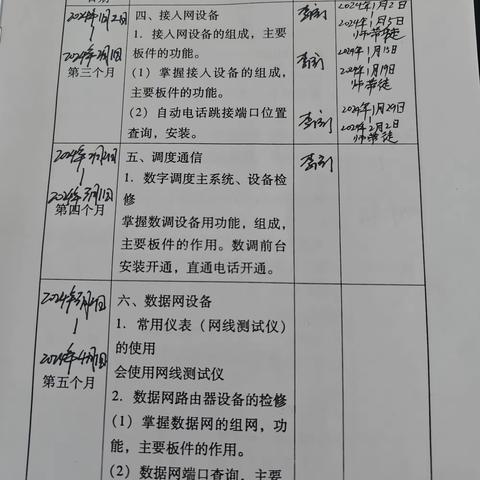 日期
2024年1月2日
2024年2月1日
第三个月
四、接入网设备
1．接入网设备的组成，主要
板件的功能。
(1) 掌握接入设备的组成，
主要板件的功能。
(2) 自动电话跳接端口位置
查询，安装。
2024年1月2日
2024年1月5日
师带徒
2024年1月15日
2024年1月19日
师带徒
2024年1月29日
2024年2月2日
师带徒
第四个月
五、调度通信
1．数字调度主系统、设备检
修
掌握数调设备用功能，组成，
主要板件的作用。数调前台
安装开通，直通电话开通。
第五个月
六、数据网设备
1．常用仪表（网线测试仪）
的使用
会使用网线测试仪
2．数据网路由器设备的检修
(1) 掌握数据网的组网，功
能，主要板件的作用。
(2) 数据网端口查询，主要